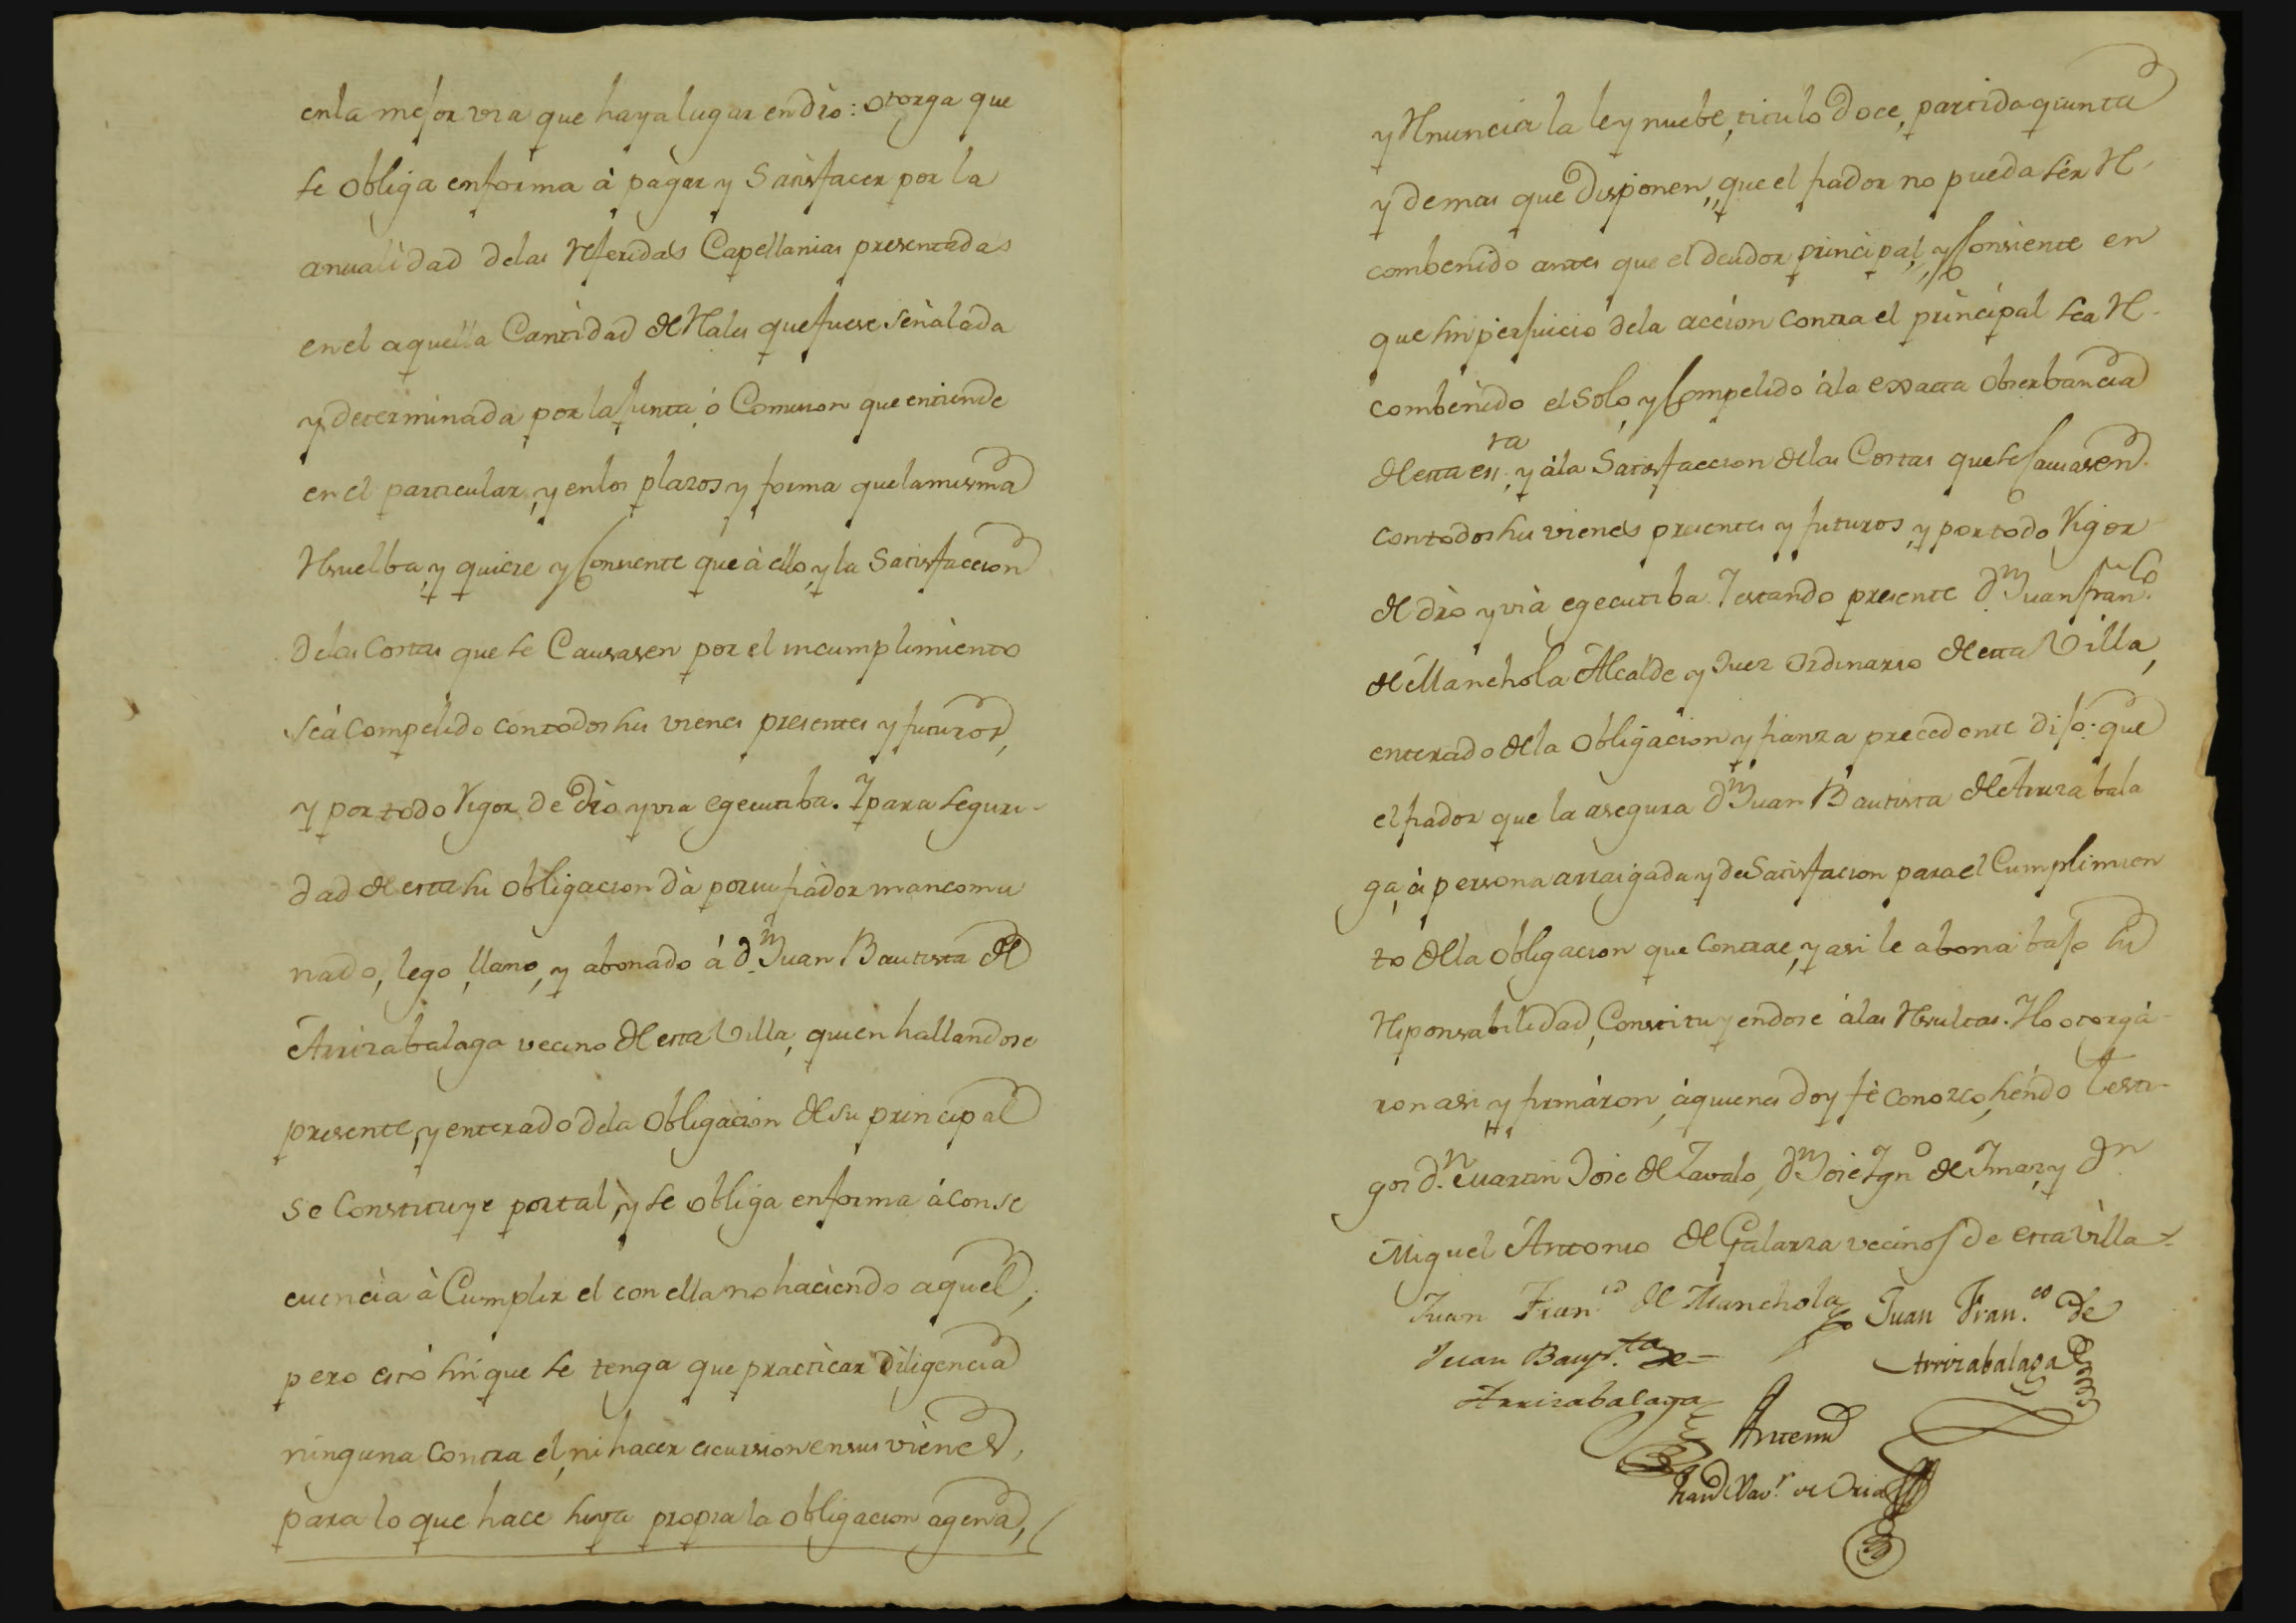 enla mejor via que haya lugar en dro: otorga que
se obliga enforma à pàgar y Satisfacer por la
anualidad delas referidas Capellanias presentadas
enel aquella Cantidad de Rales que fuese señalada
y determinada por la Junta ò Comision que entiende
en el particular, y enlos plazos y forma que la misma
resuelba, y quiere y Consiente que à ello, y la Satisfaccion
delas Costas que se Causasen por el incumplimiento
seà Compelido contodos sus vienes presentes y futuros,
y por todo rigor de dro y via egecutiba. Y para seguri-
dad de esta su obligacion dà por su fiador mancomu
nado, lego, llano, y abonado á dn. Juan Bautista de
Arrizabalaga vecino de esta Villa, quien hallandose
presente, y enterado dela obligacion de su principal
se Constituye por tal, y se obliga enforma á conse
cuencia à Cumplir el con ella no haciendo aquel;
pero esto sin que se tenga que practicar diligencia
ninguna contra el, ni hacer escursion ensus vienes,
para lo que hace suya propia la obligacion agena,
y renuncia la ley nuebe, titulo doce, partida quinta
y demas que disponen, que el fiador no pueda sér re-
combenido antes que el deudor principal, y Consiente en
que sin perjuicio dela accion contra el principal sea re-
combenido el solo, y Compelido àla exsacta obserbancia
de esta essra, y àla Satisfaccion delas Costas que se Causasen
contodos sus vienes presentes y futuros, y por todo rigor
de dro y via egecutiba. Y estando presente dn. Juan Franco
de Manchola Alcalde y Juez ordinario de esta Villa,
enterado dela obligacion y fianza precedente dijo: que
el fiador que la asegura dn Juan Bautista de Arrizabala
ga, es persona arraigada y de Satisfacion para el Cumplimien
to dela obligacion que contrae, y asi le abona bajo su
responsabilidad, Constituyendose àlas resultas. Ylo otorgà-
ron asi y firmáron, áquienes doy fè conozco, siéndo testi-
gos dn. Martin José de Zavalo, dn José Igno de Imaz, y dn
Miguel Antonio de Galarza vecinos de esta villa
Juan Franco de Manchola Juan Fran.co de
Juan Baupta de Arrizabalaga
Arrizabalaga
Antemi